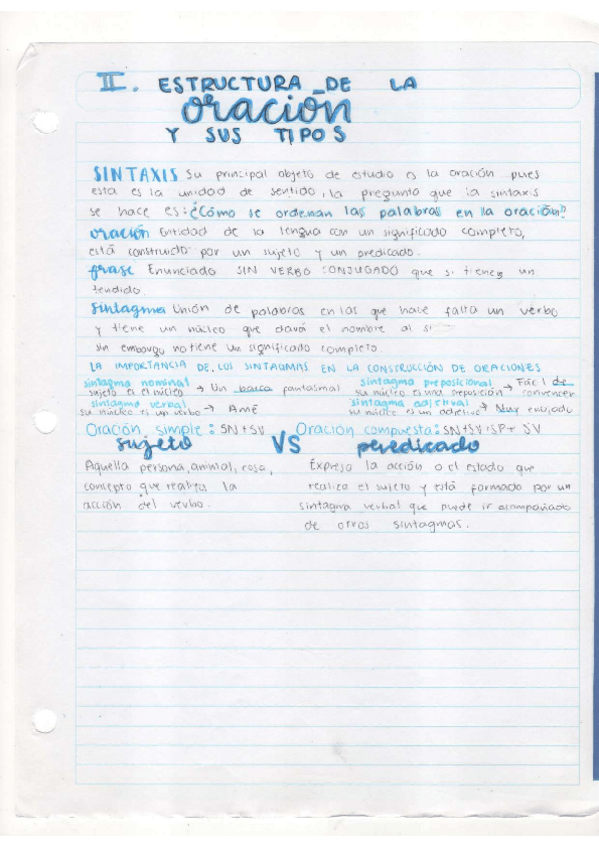 II. ESTRUCTURA DE LA
oración
Y SUS TIPOS
SINTAXIS Su principal objeto de estudio es la oración pues
esta es la unidad de sentido, la pregunta que la sintaxis
se hace es: ¿Cómo se ordenan las palabras en la oración?
oración Entidad de la lengua con un significado completo,
está construido por un sujeto y un predicado.
frase Enunciado SIN VERBO CONJUGADO que si tienes un
tendido.
sintagma Unión de palabras en las que hace falta un verbo
y tiene un núcleo que dará el nombre al si
sin embargo no tiene un significado completo.
LA IMPORTANCIA DE LOS SINTAGMAS EN LA CONSTRUCCIÓN DE ORACIONES
sintagma nominal → Un barco fantasmal
sujeto es el núcleo
sintagma preposicional → Fácil de convencer
su núcleo es una preposición
sintagma verbal → Amé
su núcleo es un verbo
sintagma adjetival → Muy enojado
su núcleo es un adjetivo
Oración simple: SN+SV Oración compuesta: SN+SV+SP+ SV
sujeto VS peredicado
Aquella persona, animal, cosa,
concepto que realiza la
acción del verbo.
Expresa la acción o el estado que
realiza el sujeto y está formado por un
sintagma verbal que puede ir acompañado
de otros sintagmas.